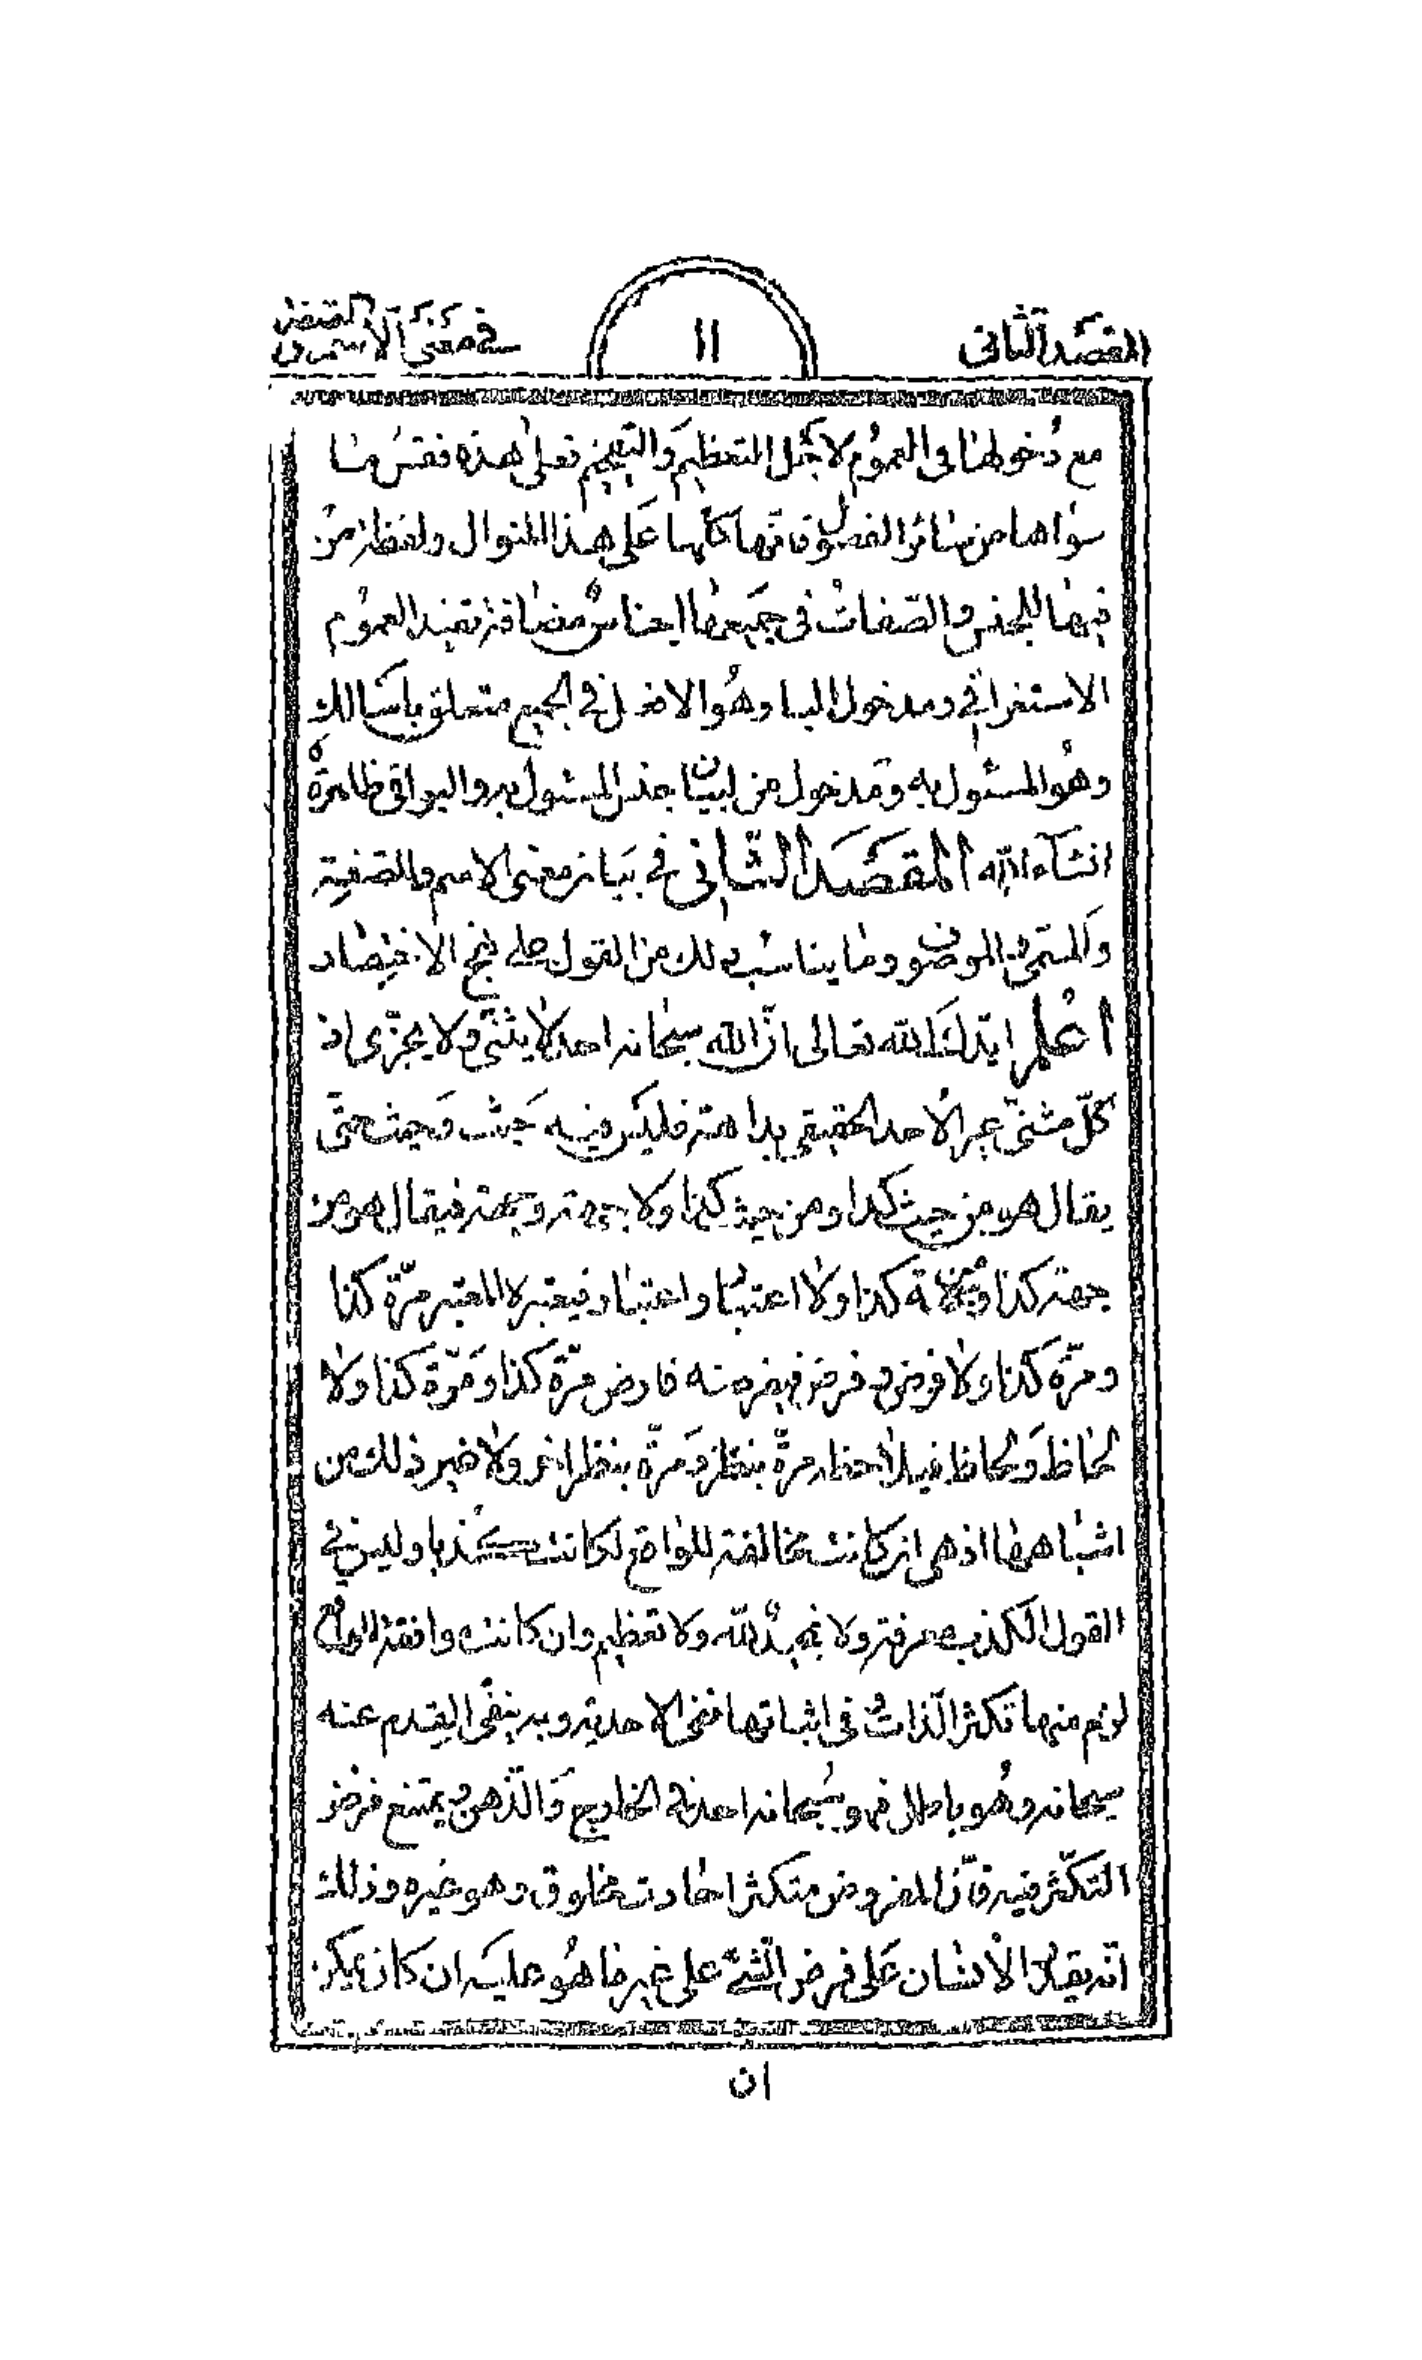 المقصد الثاني
١١
في معنى الاسم والصفة
مع دخولها فى العموم لاجل التعظيم والتبجيح فعلى هذه فقس ما
سواها من سائر الفصول فانها كلها على هذا المنوال ولفظة من
فيها للجنس والصفات فى جميعها اجناس مضافة تفيد العموم
الاستغراقي ومدخول البا وهو الافعل فى الجميع متعلق باسالك
وهو المسئول به ومدخول من لبيان جنس المسئول به والبواقى ظاهرة
انشآء الله المقصد الثانى فى بيان معنى الاسم والصفة
والمسمى الموصوف وما يناسب ذلك من القول على نهج الاختصاد
اعلم ايدك الله تعالى ان الله سبحانه احد لا يثنى ولا يجزى اذ
كل مثنى غير الاحد الحقيقى بداهة فليس فيه حيث وحيث حتى
يقال هو من حيث كذا ومن حيث كذا ولا جهة وجهة فيقال هو من
جهة كذا وجهة كذا ولا اعتبار واعتبار فيعتبره المعتبر مرّة كذا
ومرّة كذا ولا فرض وفرض فيفرضه فارض مرّة كذا ومرّة كذا ولا
لحاظ ولحاظ فيلاحظ مرةً بنظر ومرةً بنظر اخر ولا غير ذلك من
اشباهها اذ هى ان كانت مخالفة للواقع لكانت كذبا وليس فى
القول الكذب معرفة ولا تمجيد لله ولا تعظيم وان كانت وافقة الواقع
لزم منها تكثر الذات فى اثباتها نفى الاحدية وبه ينفى القدم عنه
سبحانه وهو باطل فهو سبحانه احد فى الخارج والذهن ويمتنع فرض
التكثر فيه فان المفروض متكثرا حادث مخلوق وهو غيره وذلك
انه يقدر الانسان على فرض الشئ على غير ما هو عليه ان كان يمكن
ان